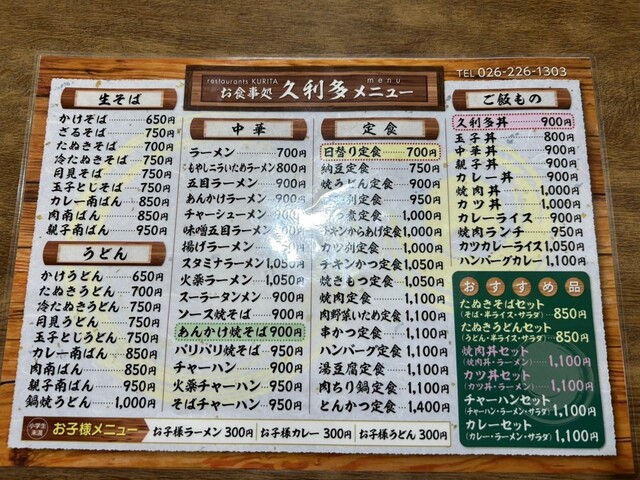 restaurants KURITA
menu
お食事処 久利多 メニュー
TEL 026-226-1303
生そば
かけそば 650円
ざるそば 750円
たぬきそば 700円
冷たぬきそば 750円
月見そば 750円
玉子とじそば 750円
カレー南ばん 850円
肉南ばん 850円
親子南ばん 950円
うどん
かけうどん 650円
たぬきうどん 700円
冷たぬきうどん 750円
月見うどん 750円
玉子とじうどん 750円
カレー南ばん 850円
肉南ばん 850円
親子南ばん 950円
鍋焼うどん 1,000円
中華
ラーメン 700円
もやしニラいためラーメン 800円
五目ラーメン 900円
あんかけラーメン 900円
チャーシューメン 900円
味噌五目ラーメン
揚げラーメン
スタミナラーメン 1,050円
火薬ラーメン 1,050円
スーラータンメン 900円
ソース焼そば 900円
あんかけ焼そば 900円
パリパリ焼そば 950円
チャーハン 900円
火薬チャーハン 950円
そばチャーハン 950円
定食
日替り定食 700円
納豆定食 750円
焼うどん定食 900円
定食 950円
煮定食 1,000円
チキンからあげ定食 1,000円
カツ別定食 950円
チキンかつ定食 1,050円
焼きもつ定食 1,050円
焼肉定食 1,100円
肉野菜いため定食 1,100円
串かつ定食 1,100円
ハンバーグ定食 1,100円
湯豆腐定食 1,100円
肉ちり鍋定食 1,100円
とんかつ定食 1,400円
ご飯もの
久利多丼 900円
玉子丼 800円
中華丼 900円
親子丼 900円
カレー丼 900円
焼肉丼 1,000円
カツ丼 1,000円
カレーライス 900円
焼肉ランチ 900円
カツカレーライス 1,050円
ハンバーグカレー 1,100円
おすすめ品
たぬきそばセット
(そば・半ライス・サラダ) 850円
たぬきうどんセット
(うどん・半ライス・サラダ) 850円
焼肉丼セット
(焼肉丼・ラーメン) 1,100円
カツ丼セット
(カツ丼・ラーメン) 1,100円
チャーハンセット
(チャーハン・ラーメン・サラダ) 1,100円
カレーセット
(カレー・ラーメン・サラダ) 1,100円
小学生未満 お子様メニュー お子様ラーメン 300円 お子様カレー 300円 お子様うどん 300円